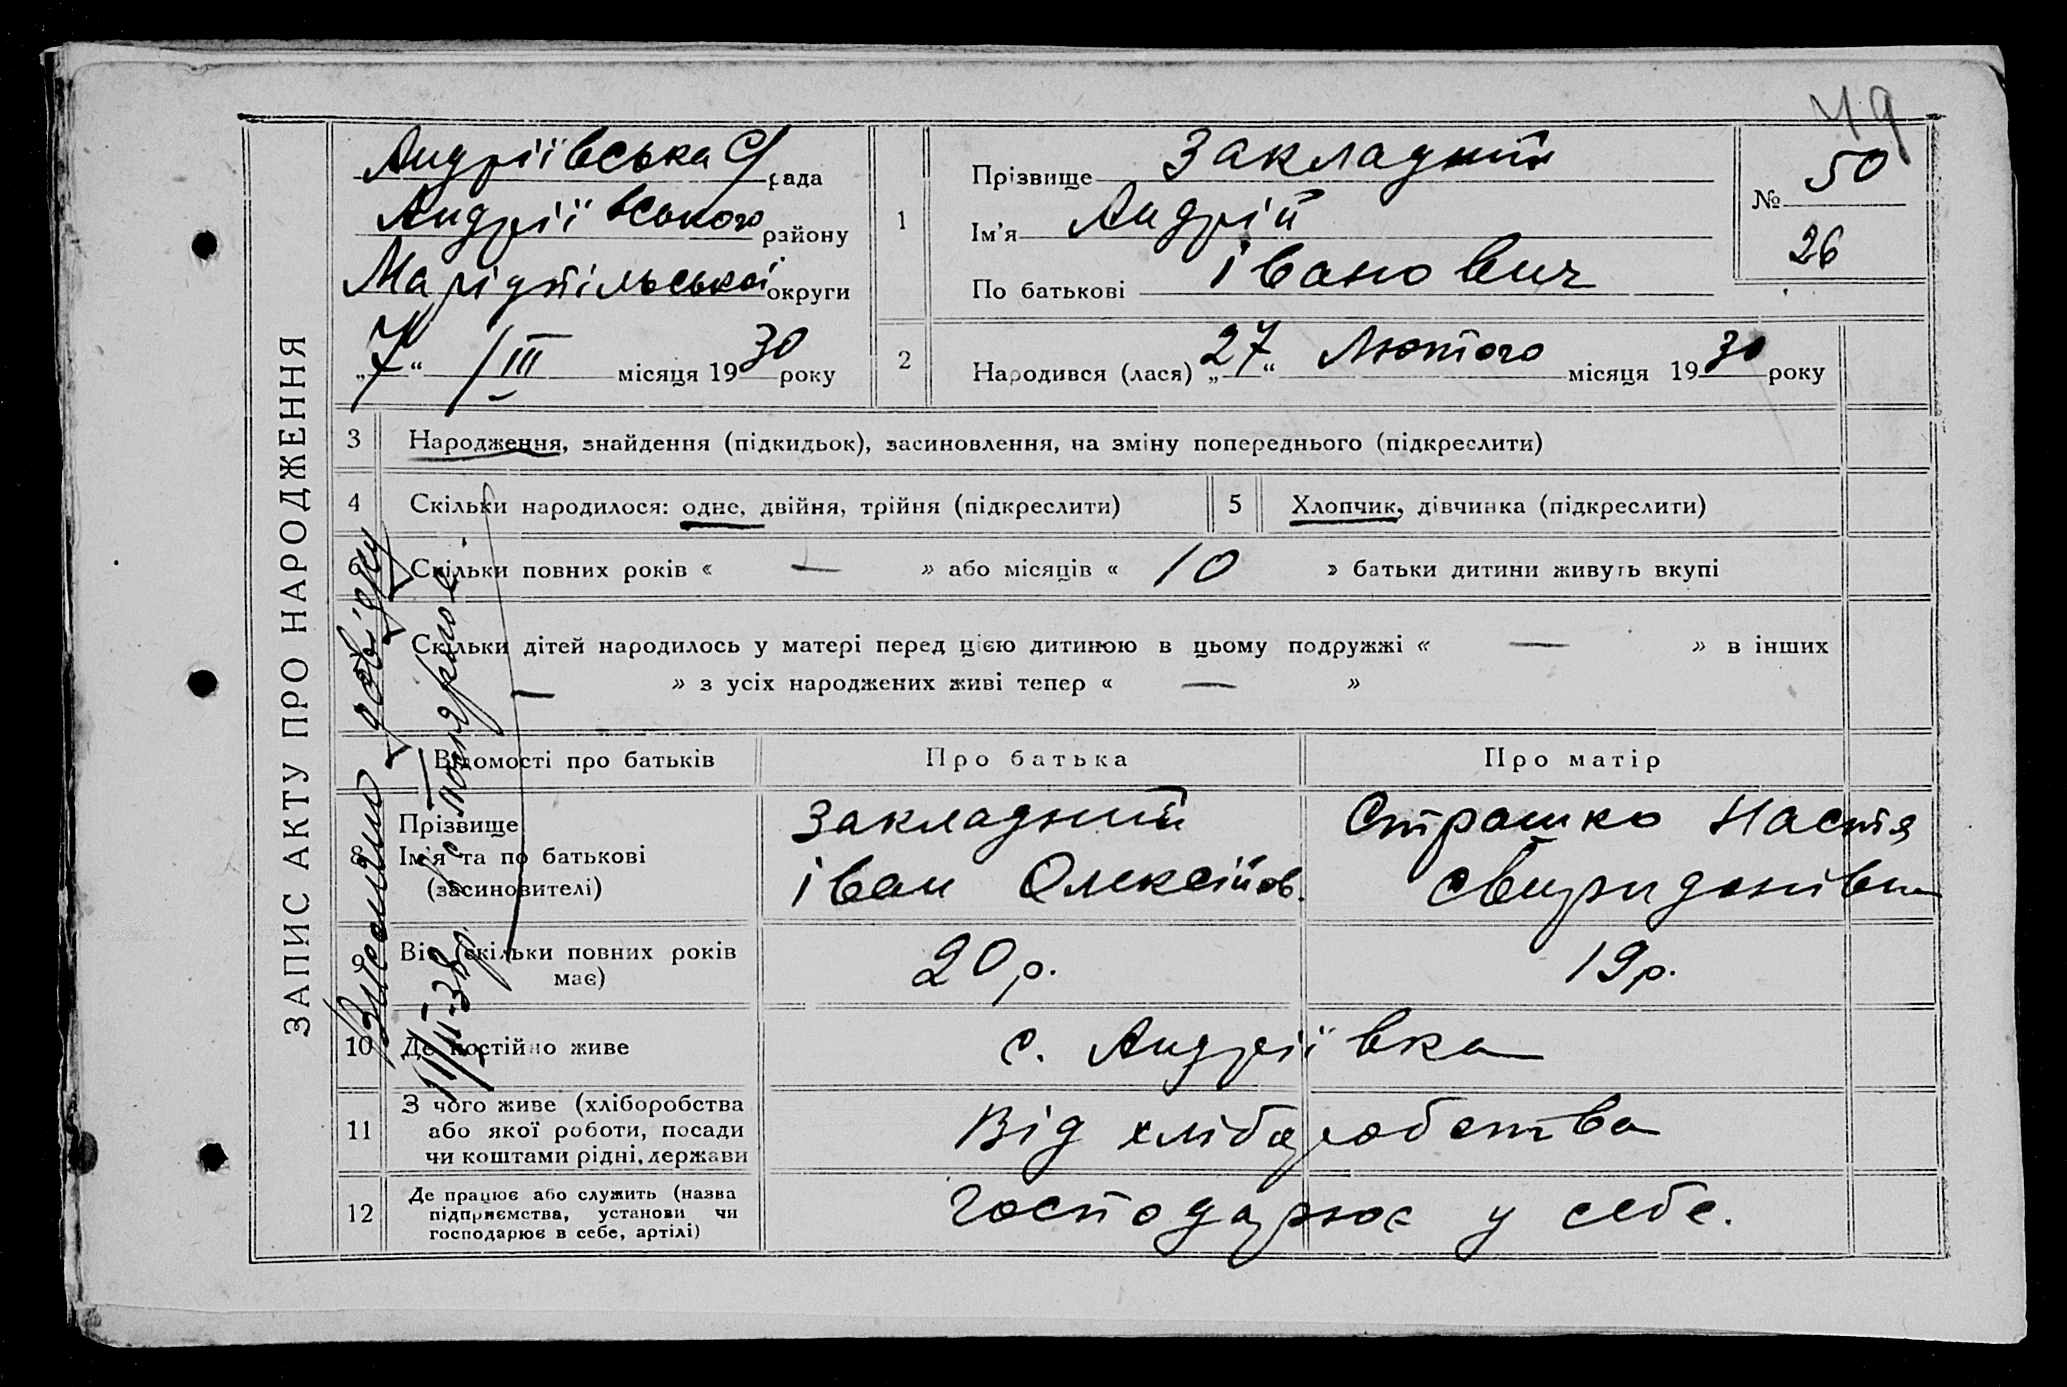 49
ЗАПИС АКТУ ПРО НАРОДЖЕННЯ
Андріївська С/рада
Андріївського району
Маріупільської округи
„7“ /III місяця 1930 року
1
Прізвище Закладний
Ім'я Андрій
По батькові Іванович
№ 50
26
2
Народився (лася) „27“ Лютого місяця 1930 року
3 Народження, знайдення (підкидьок), засиновлення, на зміну попереднього (підкреслити)
4 Скільки народилося: одне, двійня, трійня (підкреслити) 5 Хлопчик, дівчинка (підкреслити)
6 Скільки повних років « — » або місяців « 10 » батьки дитини живуть вкупі
Скільки дітей народилось у матері перед цією дитиною в цьому подружжі « — » в інших
— » з усіх народжених живі тепер « — »
Відомості про батьків Про батька Про матір
8
Прізвище
Ім'я та по батькові
(засиновителі)
Закладний
Іван Олексійов.
Страшко Настя
Свиридонівна
9
Вік скільки повних років
має)
20 р.
19 р.
10 Де постійно живе с. Андріївка
11
З чого живе (хліборобства
або якої роботи, посади
чи коштами рідні, держави
Від хліборобства
12
Де працює або служить (назва
підприємства, установи чи
господарює в себе, артілі)
Господарює у себе.
довідку